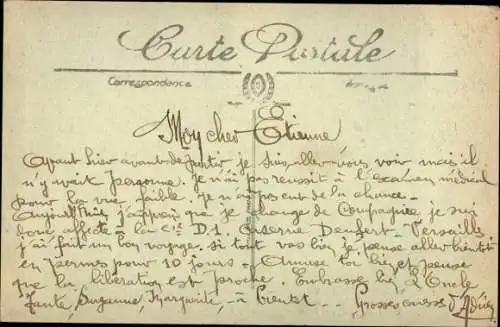 Carte Postale
Correspondance
Mon cher Etienne
Ayant hier avant de partir je suis aller vous voir mais il
n'y avait personne. je n'ai pas reussit à l'examen médical
pour la vue faible. Je n'ai pas eut de la chance.
Aujourd'hui j'apprend que je change de Compagnie je suis
donc affecté à la Cie D.1. Caserne Denfert - Versailles
j'ai fait un bon voyage. si tout vas bien je pense aller bientôt
en permes pour 10 jours - Amuse toi bien et pense
que la libération est proche. Embrasse bien L'Oncle
Tante, Suzanne, Marguerite, - à bientôt. - Grosses